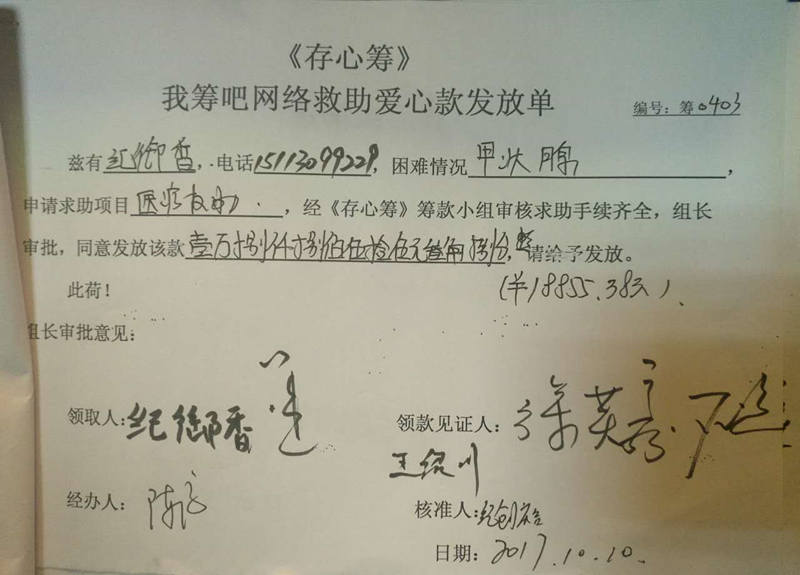 《存心筹》
我筹吧网络救助爱心款发放单
编号：筹0403
兹有纪御香，电话15113099229，困难情况甲状腺，
申请求助项目医疗救助，经《存心筹》筹款小组审核求助手续齐全，组长
审批，同意发放该款壹万捌仟捌佰伍拾伍元叁角捌分，请给予发放。
此荷！
(羊)18855.38元)
组长审批意见：
领取人：纪御香
领款见证人：徐英豪
王绍川
经办人：陈
核准人：纪创
日期：2017.10.10.